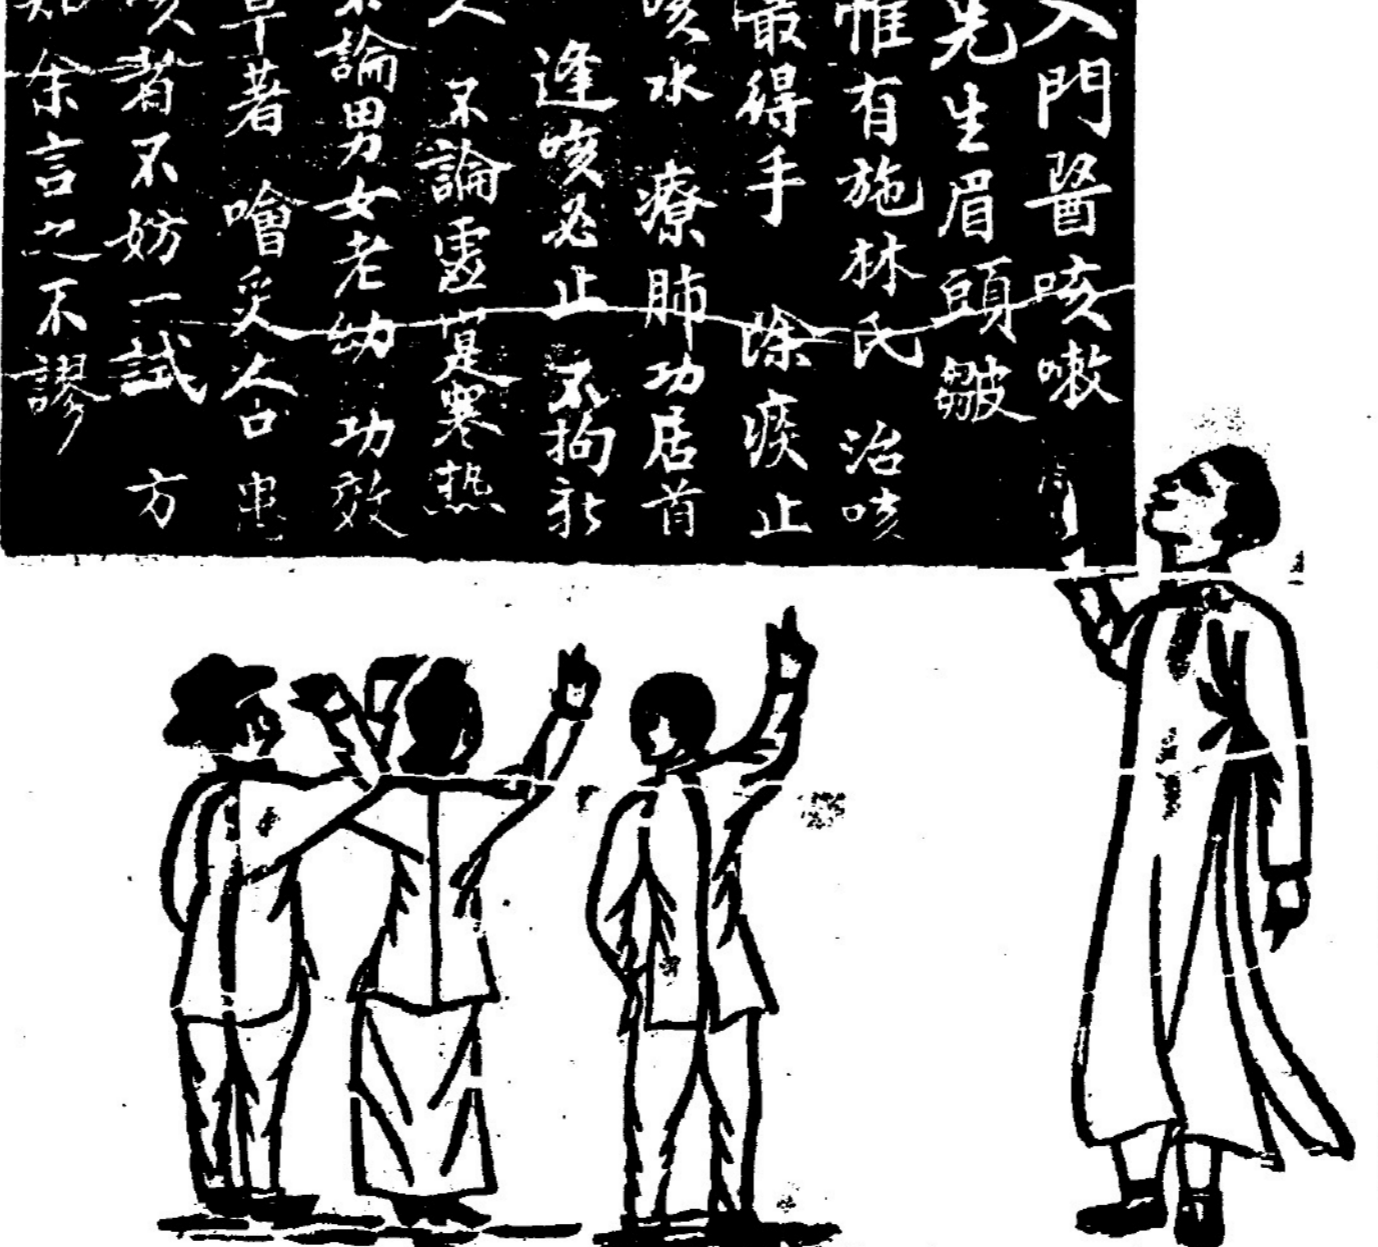 入門醫咳嗽
先生眉頭皺
惟有施林氏 治咳
最得手 除痰止
咳水 療肺功居首
逢咳必止 不拘新
久 不論虛寔寒熱
不論男女老幼 功效
卓著 噲炙人口 患
咳者不妨一試 方
知余言之不謬